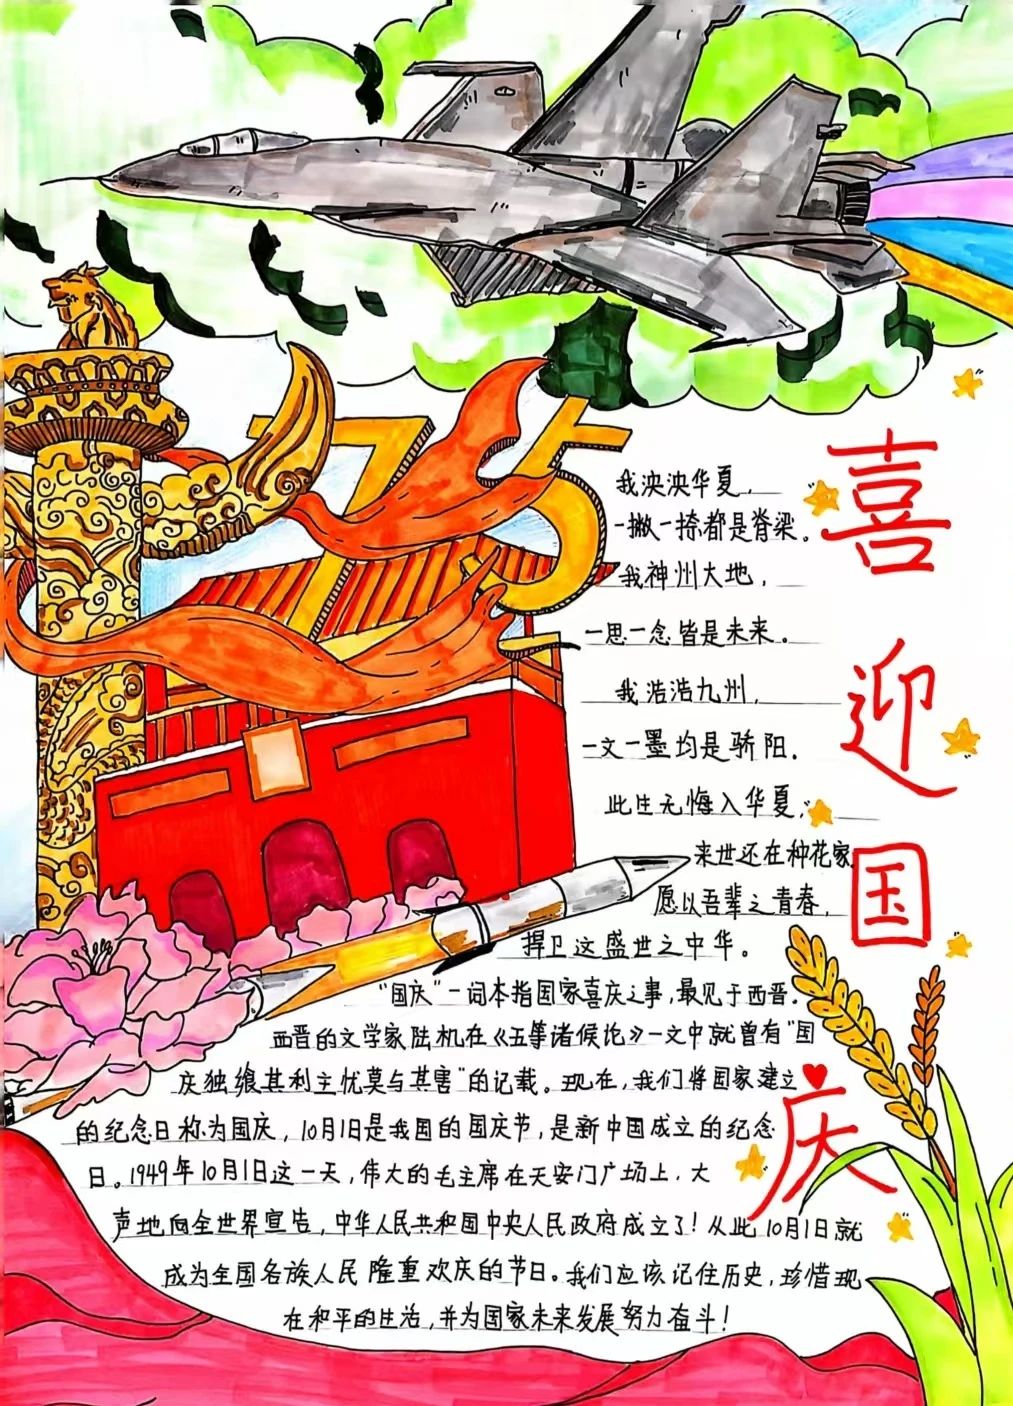 75
喜迎国庆
我泱泱华夏，
一撇一捺都是脊梁。
我神州大地，
一思一念皆是未来。
我浩浩九州，
一文一墨均是骄阳．
此生无悔入华夏，
来世还在种花家
愿以吾辈之青春，
捍卫这盛世之中华。
“国庆”一词本指国家喜庆之事，最见于西晋．
西晋的文学家陆机在《五等诸候论》一文中就曾有“国
庆独飨其利主忧莫与其害”的记载。现在，我们将国家建立
的纪念日称为国庆，10月1日是我国的国庆节，是新中国成立的纪念
日。1949年10月1日这一天，伟大的毛主席在天安门广场上．大
声地向全世界宣告，中华人民共和国中央人民政府成立了！从此10月1日就
成为全国各族人民隆重欢庆的节日。我们应该记住历史，珍惜现
在和平的生活，并为国家未来发展努力奋斗！